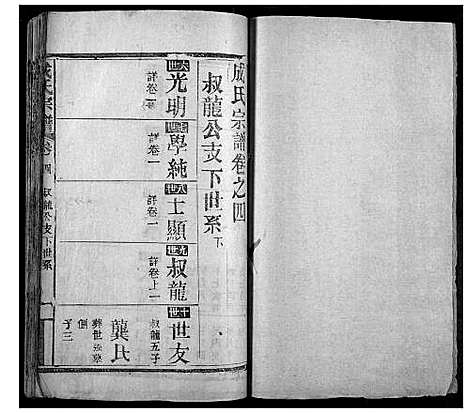 成氏宗譜卷之四
叔龍公支下世系下
六世 光明 詳卷一
七世 學純 詳卷一
八世 士顯 詳卷一
九世 叔龍 詳卷上一
十世 世友 叔龍五子
龔氏 葬世
側
子三
成氏宗譜 卷四 叔龍公支下世系